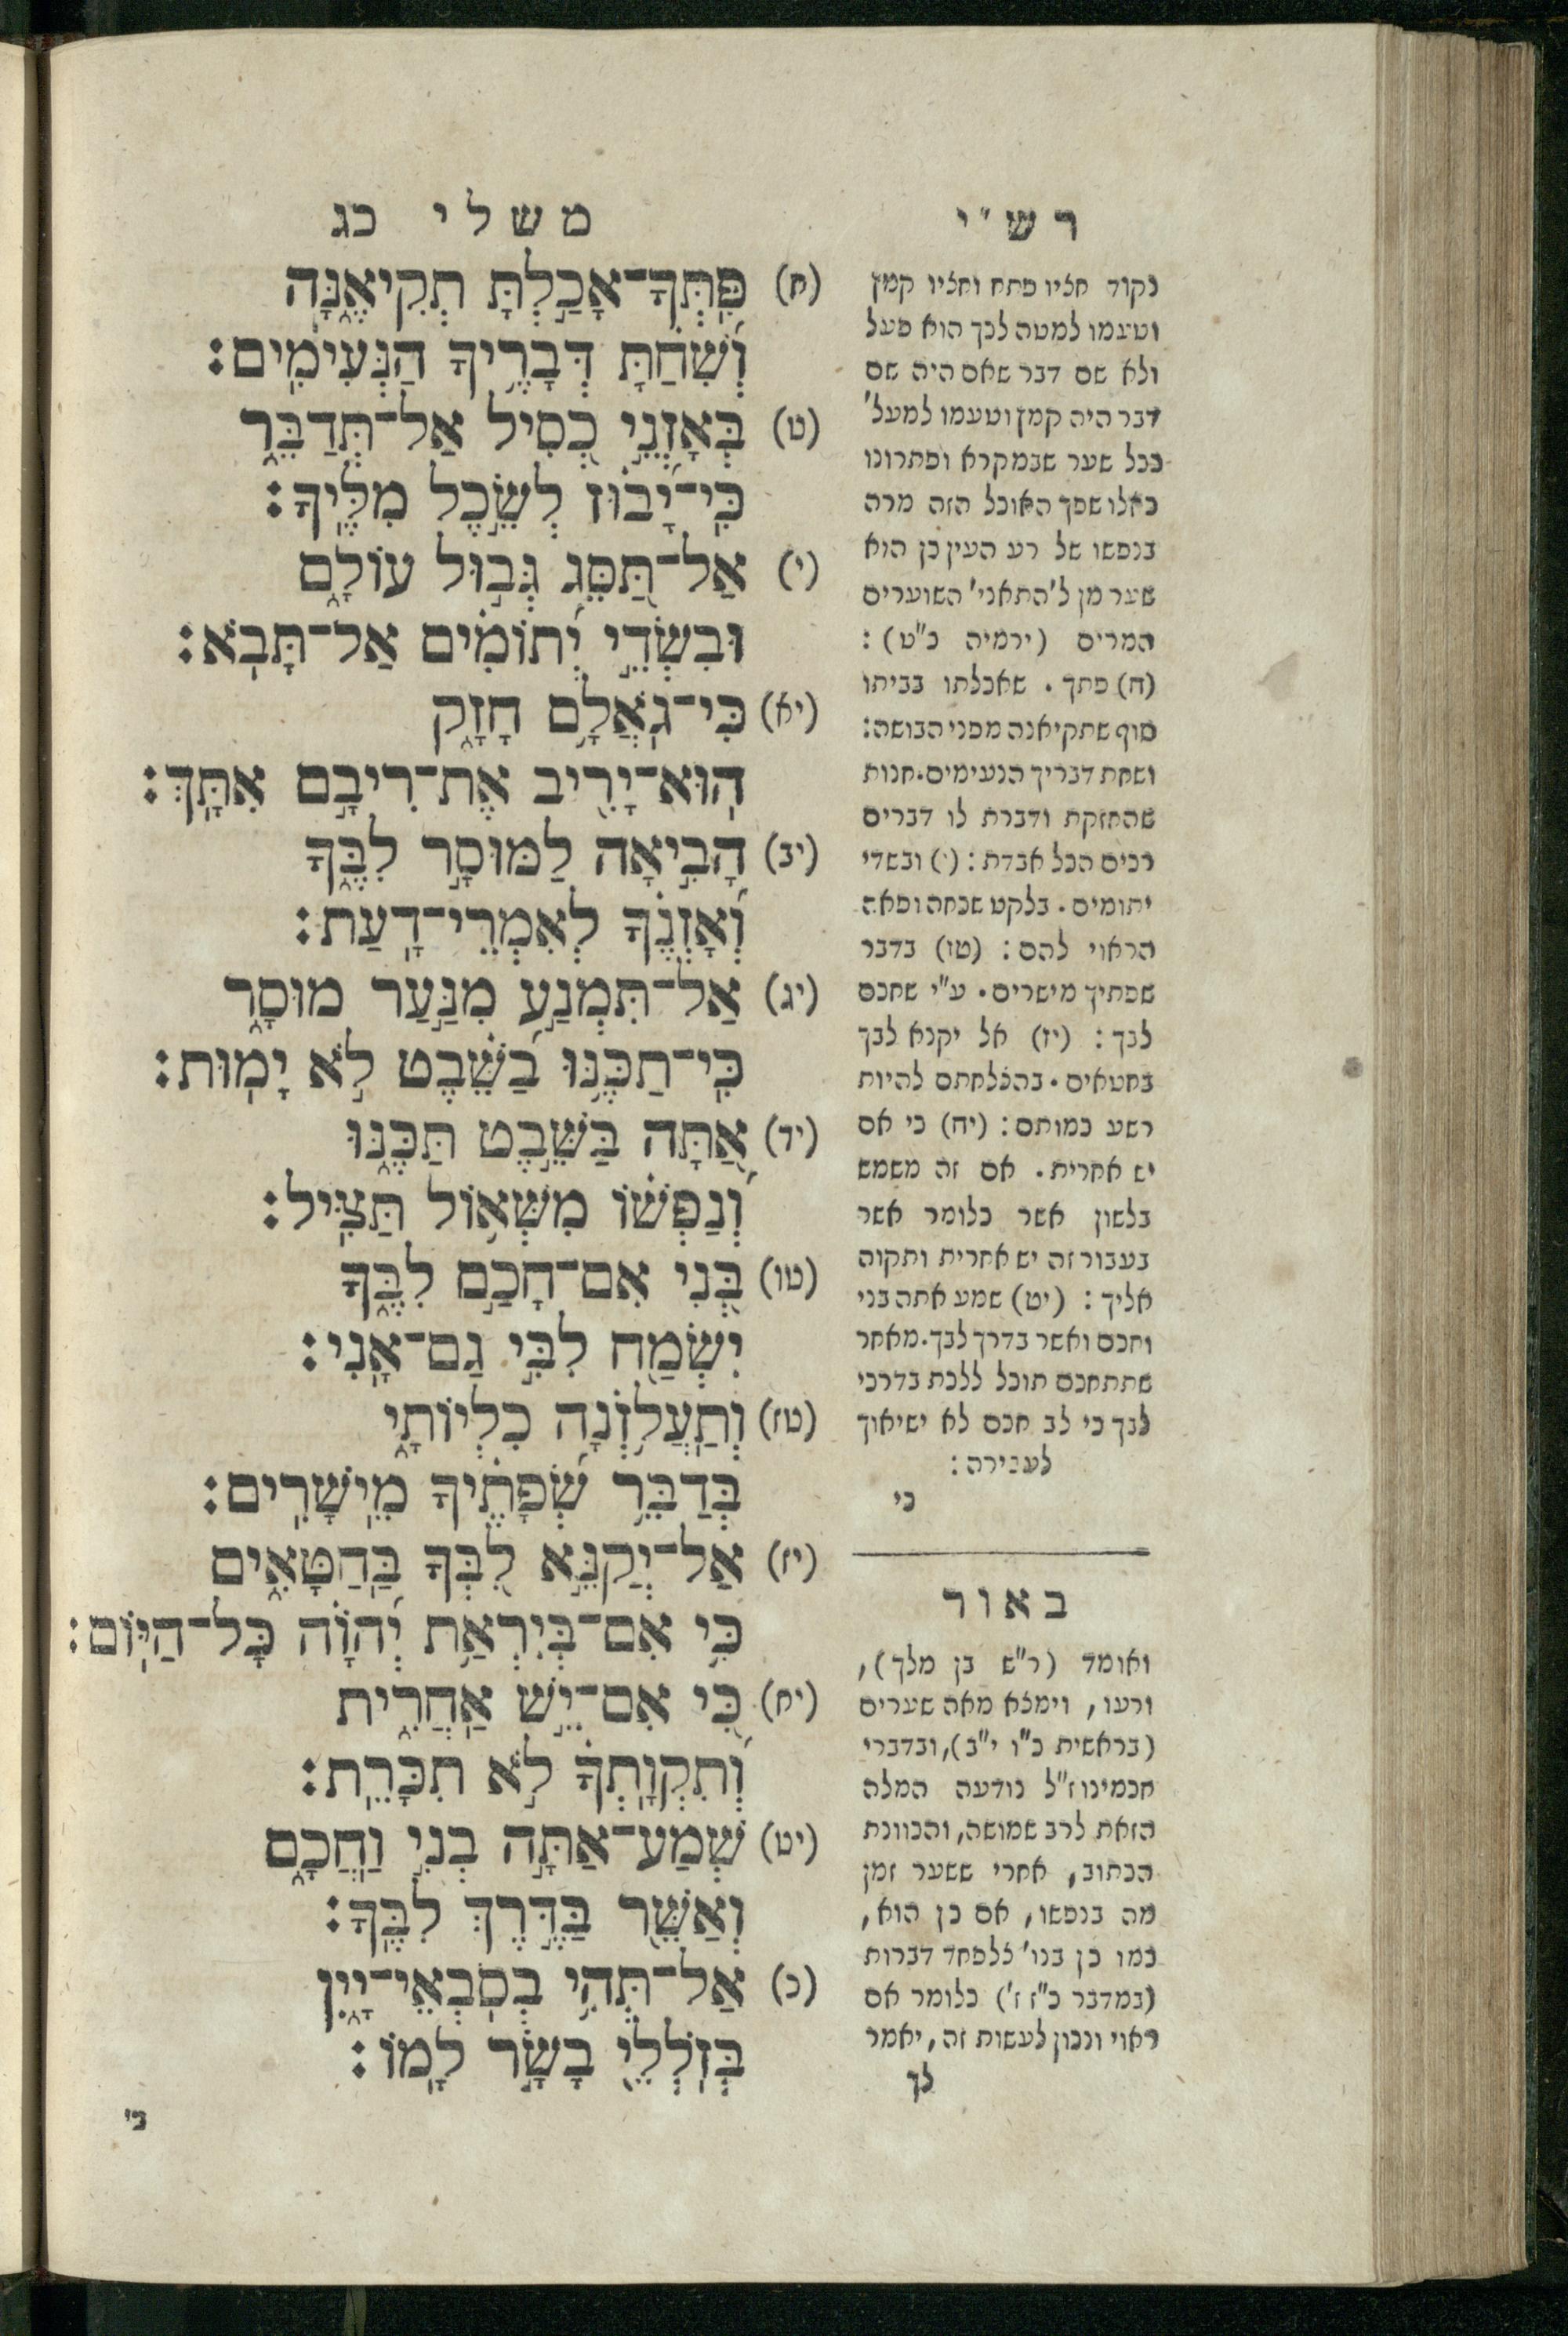 רש"י
נקוד חציו פתח וחציו קמץ
וטעמו למטה לכך הוא פעל
ולא שם דבר שאם היה שם
דבר היה קמץ וטעמו למעל'
ככל שער שבמקרא ופתרונו
כאלו שפך האוכל הזה מרה
בנפשו של רע העין כן הוא
שער מן ל' התאני' השוערים
המרים (ירמיה כ"ט) :
(ח) פתך . שאכלתו בביתו
סוף שתקיאנה מפני הבושה:
ושחת דבריך הנעימים. חנות
שהחזקת ודברת לו דברים
רכים הכל אבדת : (י) ובשדי
יתומים . בלקט שכחה ופאה
הראוי להם : (טז) בדבר
שפתיך מישרים . ע"י שחכם
לבך : (יז) אל יקנא לבך
בחטאים . בהצלחתם להיות
רשע כמותם : (יח) כי אם
יש אחרית . אם זה משמש
בלשון אשר כלומר אשר
בעבור זה יש אחרית ותקוה
אליך : (יט) שמע אתה בני
וחכם ואשר בדרך לבך. מאחר
שתתחכם תוכל ללכת בדרכי
לבך כי לב חכם לא ישיאוך
לעבירה :
כי
באור
ואומד (ר"ש בן מלך),
ורעו, וימצא מאה שערים
(בראשית כ"ו י"ב), ובדברי
חכמינו ז"ל נודעה המלה
הזאת לרב שמושה, והכוונת
הכתוב, אחרי ששער זמן
מה בנפשו, אם כן הוא,
כמו כן בנו' צלפחד דברות
(במדבר כ"ז ז') כלומר אם
ראוי ונכון לעשות זה, יאמר
לך
משלי כג
(ח) פִּֽתְּךָ־אָכַ֥לְתָּ תְקִיאֶ֑נָּה
וְ֝שִׁחַ֗תָּ דְּבָרֶ֥יךָ הַנְּעִימִֽים׃
(ט) בְּאָזְנֵ֣י כְ֭סִיל אַל־תְּדַבֵּ֑ר
כִּֽי־יָ֝ב֗וּז לְשֵׂ֣כֶל מִלֶּֽיךָ׃
(י) אַל־תַּ֭סֵּג גְּב֣וּל עוֹלָ֑ם
וּבִשְׂדֵ֥י יְ֝תוֹמִ֗ים אַל־תָּבֹֽא׃
(יא) כִּֽי־גֹאֲלָ֥ם חָזָ֑ק
הֽוּא־יָרִ֖יב אֶת־רִיבָ֣ם אִתָּֽךְ׃
(יב) הָבִ֣יאָה לַמּוּסָ֣ר לִבֶּ֑ךָ
וְ֝אָזְנֶ֗ךָ לְאִמְרֵי־דָֽעַת׃
(יג) אַל־תִּמְנַ֣ע מִנַּ֣עַר מוּסָ֑ר
כִּֽי־תַכֶּ֥נּוּ בַ֝שֵּׁ֗בֶט לֹ֣א יָמֽוּת׃
(יד) אַ֭תָּה בַּשֵּׁ֣בֶט תַּכֶּ֑נּוּ
וְ֝נַפְשׁ֗וֹ מִשְּׁא֥וֹל תַּצִּֽיל׃
(טו) בְּ֭נִי אִם־חָכַ֣ם לִבֶּ֑ךָ
יִשְׂמַ֖ח לִבִּ֣י גַם־אָֽנִי׃
(טז) וְתַעֲלֹ֥זְנָה כִלְיוֹתָ֑י
בְּדַבֵּ֥ר שְׂ֝פָתֶ֗יךָ מֵֽישָׁרִֽים׃
(יז) אַל־יְקַנֵּ֣א לִ֭בְּךָ בַּֽחַטָּאִ֑ים
כִּ֥י אִם־בְּיִרְאַ֥ת יְ֝הוָ֗ה כָּל־הַיּֽוֹם׃
(יח) כִּ֭י אִם־יֵ֣שׁ אַחֲרִ֑ית
וְ֝תִקְוָתְךָ֗ לֹ֣א תִכָּרֵֽת׃
(יט) שְׁמַע־אַתָּ֣ה בְנִ֣י וַחֲכָ֑ם
וְאַשֵּׁ֖ר בַּדֶּ֣רֶךְ לִבֶּֽךָ׃
(כ) אַל־תְּהִ֥י בְסֹֽבְאֵי־יָ֑יִן
בְּזֹֽלְלֵ֖י בָשָׂ֣ר לָֽמוֹ׃
כי